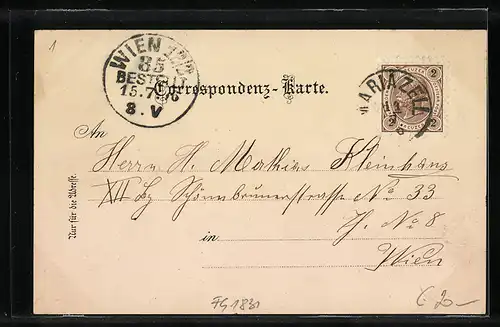 1
WIEN
85
BESTELLT
15.7
8.V
Correspondenz-Karte.
MARIAZELL
2
2
An
Herrn H. Mathias Kleinhans
XII Bz Schönbrunerstrasse No 33
Th. No 8
in Wien
Nur für die Adresse.
FG1831